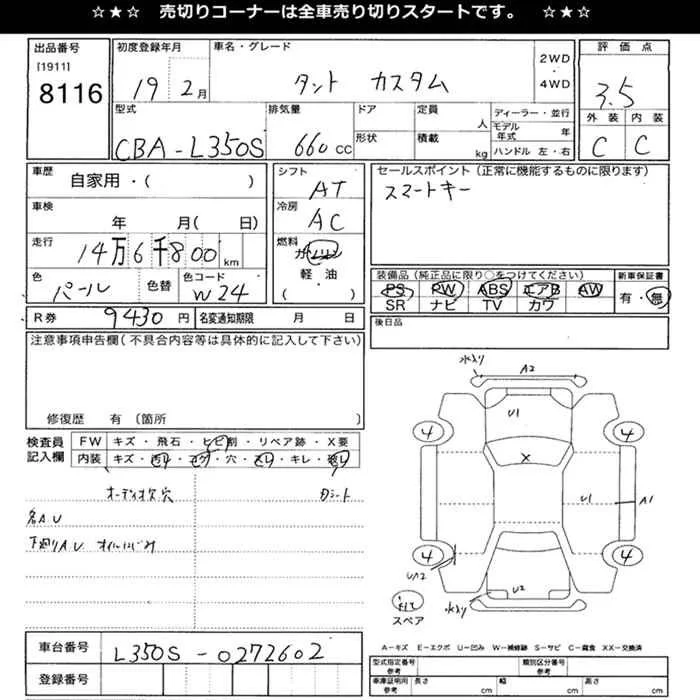 ☆★☆ 売切りコーナーは全車売り切りスタートです。 ☆★☆
出品番号
[1911]
8116
初度登録年月
19 2月
車名・グレード
タント カスタム
2WD
・
4WD
評価点
3.5
外装 内装
C C
型式
CBA-L350S
排気量
660cc
ドア
形状
定員
人
積載
kg
ディーラー・並行
モデル年式 年
ハンドル 左・右
車歴
自家用・( )
車検
年 月( 日)
走行
14万6千800km
色
パール
色替
色コード
W24
シフト
AT
冷房
AC
燃料
ガソリン
軽・油
( )
セールスポイント(正常に機能するものに限ります)
スマートキー
装備品(純正品に限り○をつけてください)
PS PW ABS エアB AW
SR ナビ TV カワ
新車保証書
有・無
後日品
R券 9430円
名変通知期限 月 日
注意事項申告欄(不具合内容等は具体的に記入して下さい)
修復歴 有 (箇所 )
検査員
記入欄
FW キズ・飛石・ヒビ割・リペア跡・X要
内装 キズ・汚レ・コゲ・穴・スレ・キレ・破レ
オーディオ欠穴
シート
各AU
下廻りAU オイルにじみ
水入り
A2
U1
4
4
X
U1
A1
4
4
UA2
U2
水入り
スペア
A-キズ E-エクボ U-凹み W-補修跡 S-サビ C-腐食 XX-交換済
車台番号
L350S-0272602
登録番号
型式指定番号
参考
類別区分番号
参考
車庫証明用
参考
長さ cm
幅 cm
高さ cm